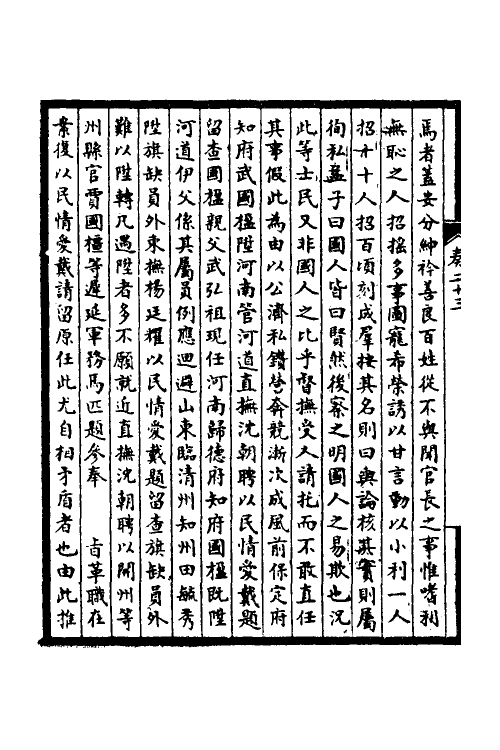 焉者蓋安分紳衿善良百姓從不與聞官長之事惟嗜利
無恥之人招搖多事圖寵希榮誘以甘言動以小利一人
招十十人招百頃刻成羣按其名則曰輿論核其實則屬
徇私孟子曰國人皆曰賢然後察之明國人之易欺也況
此等士民又非國人之比乎督撫受人請托而不敢直任
其事假此為由以公濟私鑽營奔競漸次成風前保定府
知府武國楹陞河南管河道直撫沈朝聘以民情愛戴題
留查國楹親父武弘祖現任河南歸德府知府國楹既陞
河道伊父係其屬員例應迴避山東臨清州知州田敏秀
陞旗缺員外東撫楊廷耀以民情愛戴題留查旗缺員外
難以陞轉凡遇陞者多不願就近直撫沈朝聘以開州等
州縣官賈國檀等遲延軍務馬匹題參奉　　旨革職在
案復以民情愛戴請留原任此尤自相矛盾者也由此推
卷二十三